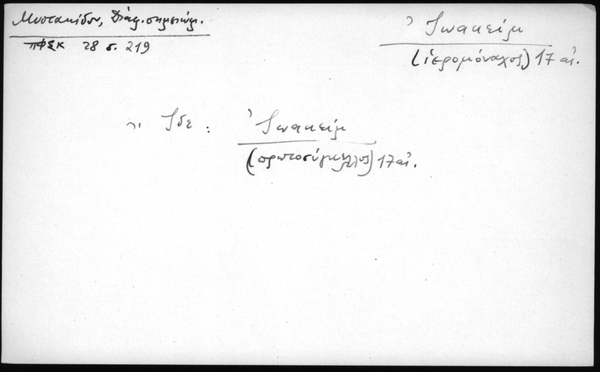 Μυστακίδου, Διάφ. σημειώμ.
ΠΦΣΚ 28 σ. 219
Ἰωακείμ
(ἱερομόναχος) 17 αἰ.
Ἰδε : Ἰωακείμ
(πρωτοσύγκελλος) 17 αἰ.